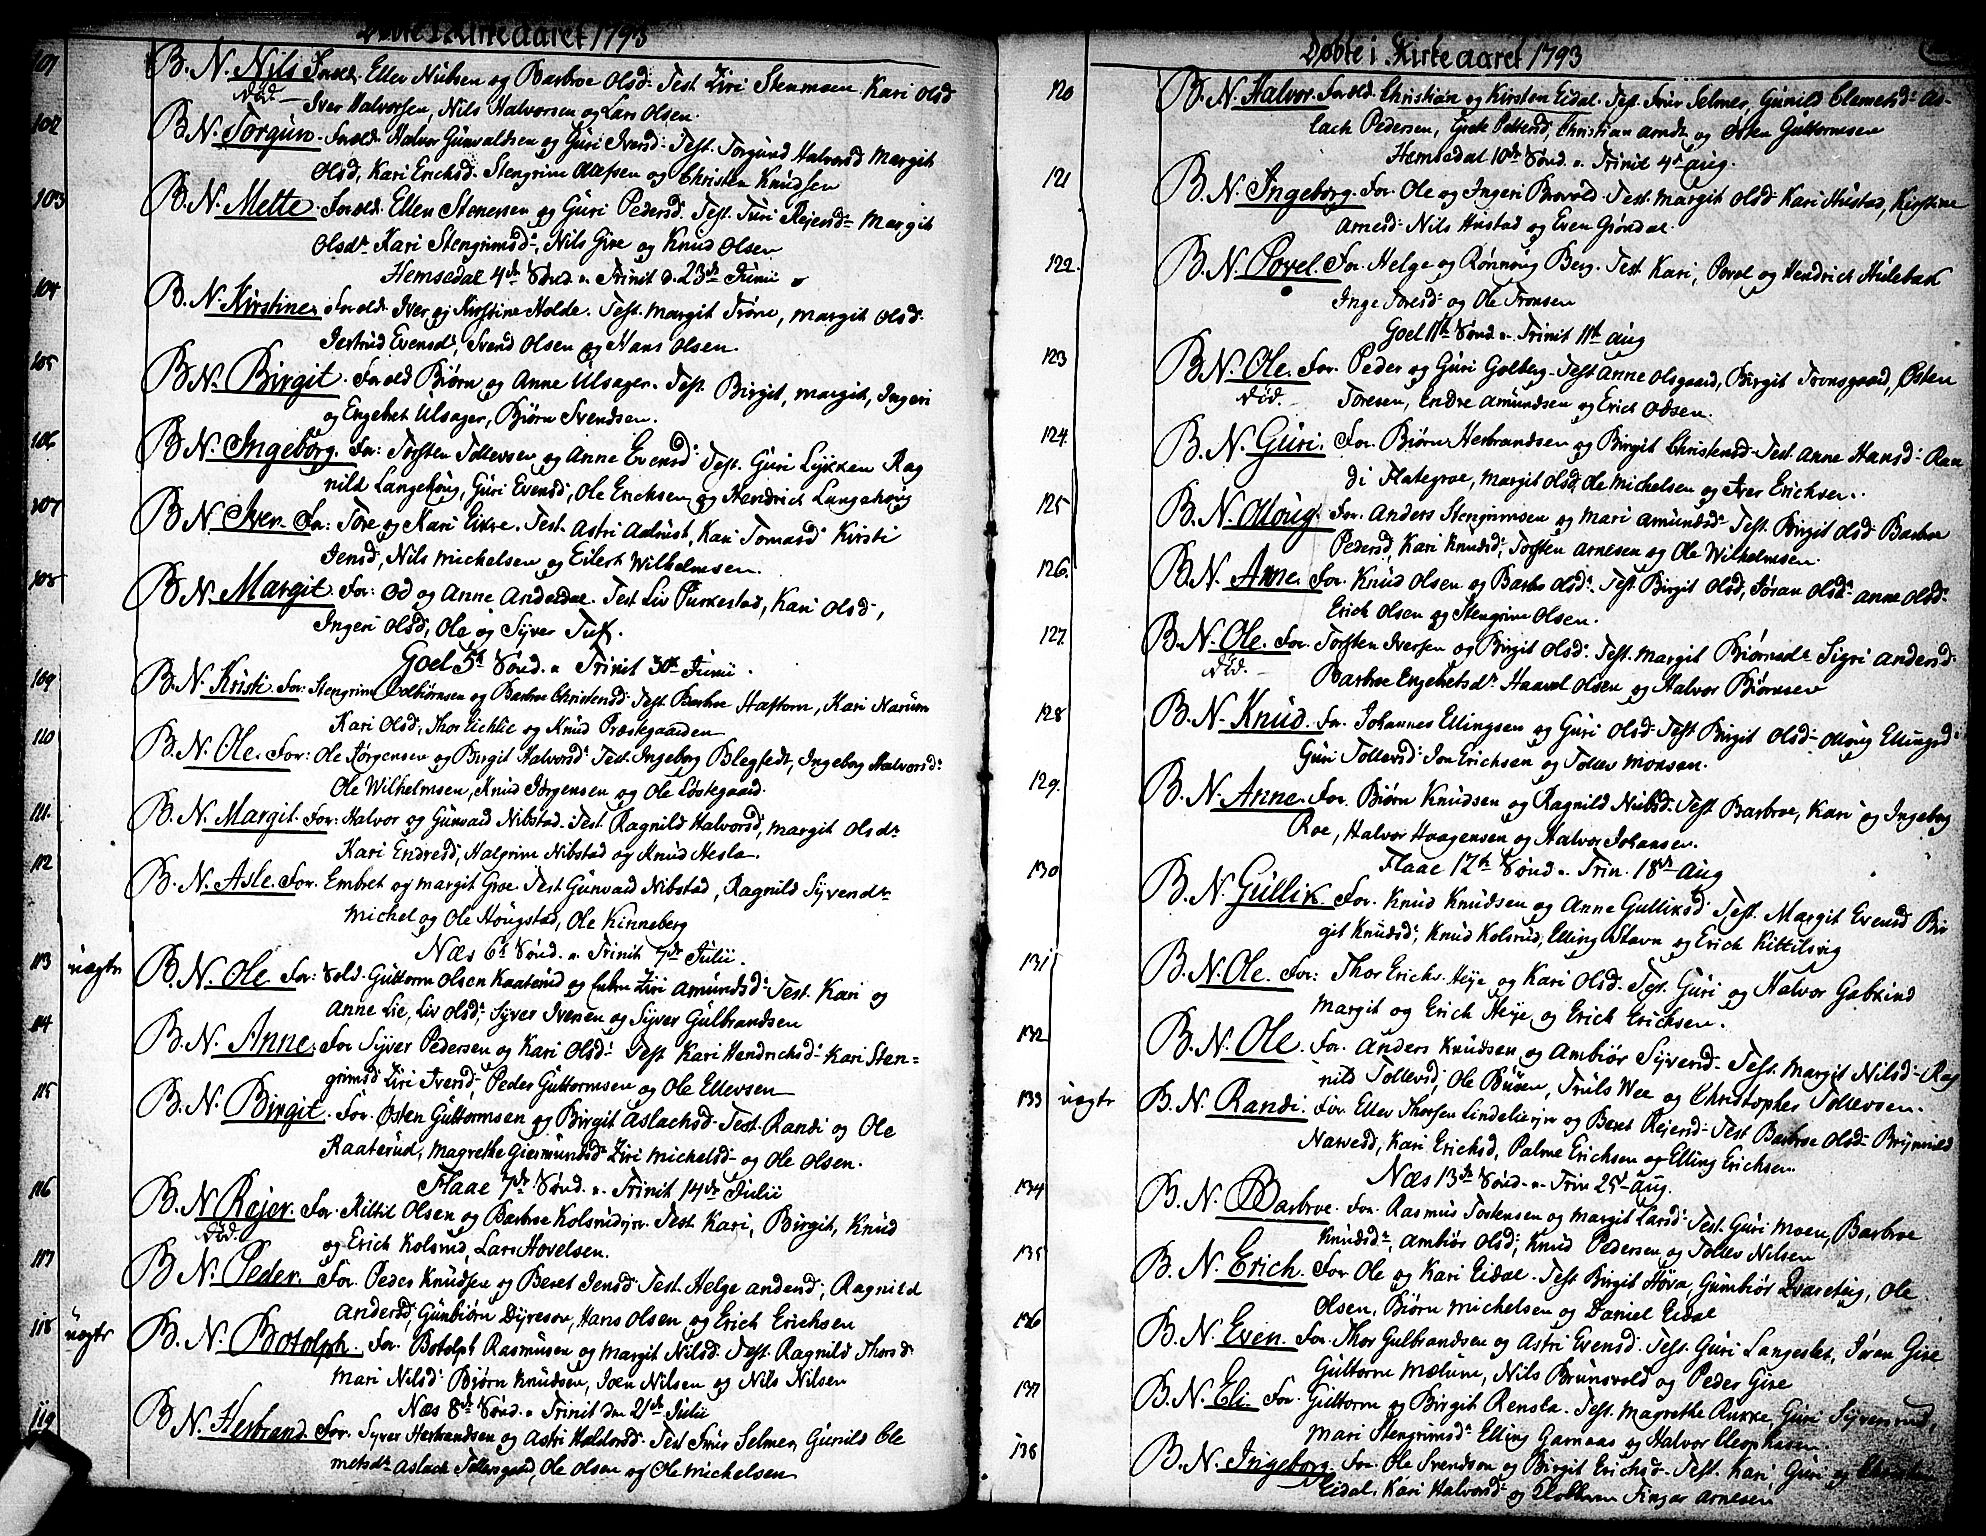 Døbte i Kirke aaret 1793
101 B. N. Nils Forold. Ellev Nielsen og Barbroe Olsd: Test. Ziri Stenmsen Kari Olsd
død. Iver Halvorsen, Nils Halvorsen og Lars Olsen.
102 B. N. Torgun. Forold. Halvor Gunvaldsen og Guri Iversd: Test. Torgund Halvorsd Margit
Olsd, Kari Erichsd. Stengrim Olefsen og Christen Knudsen
103 B. N. Mette. Forold. Ellen Stenersen og Guri Pedersd. Test. Turi Rejersd: Margit
Olsdr Kari Stengrimsd:, Nils Give og Knud Olsen
Hemsedal 4de Sønd. p. Trinit d. 23de Junii
104 B. N. Kirstine, Forold. Iver og Kirstine Holde. Test. Margit Trøve, Margit Olsd:
Jertrud Evensd:, Svend Olsen og Hans Olsen.
105 B. N. Birgit. Forold Biørn og Anne Ulsager. Test. Birgit, Margit, Ingeri
og Engebret Ulsager, Biørn Svendsen.
106 B. N. Ingeborg. For: Torsten Tollevsen og Anne Evensd: Test. Guri Lykken Rag
nild Langehoug, Guri Evensd:, Ole Erichsen og Hendrich Langehoug
107 B. N. Iver. For: Tore og Kari Eikre. Test. Astri Aalrust, Kari Tomasd: Kirsti
Jensd, Nils Michelsen og Eilert Wilhelmsen.
108 B. N. Margit. For: Od og Anne Anderdal. Test. Liv Turkestad, Kari Olsd,
Ingeri Olsd, Ole og Syver Tuf.
Goel 5te Sønd. p. Trinit 30te Junii.
109 B. N. Kristi. For: Stengrim Colbiørnsen og Barbroe Christensd: Test. Barbroe Haftorn, Kari Narum
Kari Olsd. Thor Lichlie og Knud Præstegaarden
110 B. N. Ole. For: Ole Jørgensen og Birgit Halvorsd: Test. Ingeborg Blegsedt, Ingeborg Halvorsd:
Ole Wilhelmsen, Knud Jørgensen og Ole Løstegaard.
111. B. N. Margit. For: Halvor og Gunvald Nibstad. Test. Ragnild Halvorsd, Margit Olsdr
Kari Endresd, Halgrim Nibstad og Knud Hesla.
112 B. N. Asle. For. Embret og Margit Groe. Test. Gunvald Nibstad, Ragnild Syversdr
Michel og Ole Hougstad, Ole Kinneberg
Næs 6te Sønd. p. Trinit 7de Julii.
113 uægte B. N. Ole. For: Sold. Guttorm Olsen Kaaterud og Ziri Amundsd: Test. Kari og
Anne Lie, Liv Olsd:, Syver Iversen og Syver Gulbrandsen
114 B. N. Anne. For Syver Pedersen og Kari Olsd: Test Kari Hendrichsd: Kari Sten=
grimsd Ziri Iversd, Peder Guttormsen og Ole Ellevsen
115 B. N. Birgit. For. Østen Guttormsen og Birgit Aslachsd: Test. Randi og Ole
Kaaterud, Magrethe Giermundsd: Ziri Michelsd: og Ole Olsen.
Flaae 7de Sønd. p. Trinit 14de Julii
116 B. N. Rejer. For. Kittil Olsen og Barbroe Kolsrud Test. Kari, Birgit, Knud
død. og Erich Kolsrud, Lars Hovelsen.
117 B. N. Peder. For. Peder Knudsen og Beret Jensd: Test. Helge Andersd; Ragnild
Andersd, Gunbiørn Dyresen, Hans Olsen og Erich Erichsen
118 uægte B. N. Botolph. For. Botolph Rasmusen og Margit Nilsd. Test. Ragnild Thorsd.
Mari Nilsd: Biørn Knudsen, Joen Nilsen og Nils Nilsen
Næs 8de Sønd. p. Trinit den 21de Julii
119 B. N. Herbrand. For. Syver Herbrandsen og Astri Haldorsd: Test Frue Selmer, Gunild Cle
metsdr Aslach Tollersgaard, Ole Olsen og Ole Michelsen
Døbte i Kirke aaret 1793
120 B. N. Halvor. Forold. Christian og Kirsten Eidal. Test. Fruer Selmer, Gunild Clemetsd: As-
lach Pedersen, Grete Pettersd, Christian Arndt og Østen Guttormsen
Hemsedal 10de Sønd. p. Trinit 4de Aug.
121 B. N. Ingeborg. For. Ole og Ingeri Brovold. Test. Margit Olsd: Kari Hustad, Kirstine
Arnesd: Nils Hustad og Even Giøndal.
122. B. N. Povel. For. Helge og Rønnoug Berg. Test. Kari, Povel og Hendrich Hulebak
Inge Toresd: og Ole Tronsen
Goel 11te Sønd. p. Trinit 11te Aug
123 B. N. Ole. For. Peder og Guri Golberg. Test Anne Olsgaard, Birgit Tronsgaard, Østen
død. Toresen, Endre Amundsen og Erich Olsen.
124. B. N. Guri. For. Biørn Herbrandsen og Birgit Christensd: Test. Anne Hansd: Ran
di Flategroe, Margit Olsd, Ole Michelsen og Iver Erichsen.
125 B. N. Oloug. For. Anders Stengrimsen og Mari Amundsd: Test. Birgit Olsd: Barbroe
Pedersd, Kari Knudsd: Torsten Arnesen og Ole Wilhelmsen.
126. B. N. Anne. For. Knud Olsen og Barbro Olsd: Test. Birgit Olsd, Jøran Olsdr Anne Olsd:
Erich Olsen og Stengrim Olsen.
127. B. N. Ole. For. Torsten Iversen og Birgit Olsd: Test. Margit Biørnsdr Sigri Andersd:
død. Barbroe Engebretsdr Haavel Olsen og Halvor Biørnsen
128 B. N. Knud. For. Johannes Ellingsen og Guri Olsd: Test Birgit Olsd: Oloug Ellingsd:
Guri Tollevsd: Jon Erichsen og Tollev Monsen.
129. B. N. Anne. For. Biørn Knudsen og Ragnild Nilsd: Test. Barbroe, Kari og Ingeborg
Roe, Halvor Haagensen og Halvor Johansen.
Flaae 12te Sønd. p. Trin. 18de Aug
130 B. N. Gullik. For. Knud Knudsen og Anne Gulliksd Test. Margit Evensd Bir
git Knudsd, Knud Kolsrud, Elling Stavn og Erich Kittilsvig
131 B. N. Ole. For: Thor Erichs. Heje og Kari Olsd. Test. Guri og Halvor Gabrud
Margit og Erich Heje og Erich Erichsen.
132 B. N. Ole. For. Anders Knudsen og Ambiør Syversd. Test. Margit Nilsd: Rag
nild Tollevsd, Ole Buøen, Truls Wee og Christopher Tollevsen.
133 uægte B. N. Randi. For. Ellev Thorsen Lindelie og Beret Rejersd: Test Barbroe Olsd: Brynild
Narvesd, Kari Erichsd, Palme Erichsen og Elling Erichsen.
Næs 13de Sønd. p. Trin 25de Aug.
134 B. N. Barbroe. For. Rasmus Tostensen og Margit Larsd: Test. Guri Moen, Barbroe
Knudsdr, Ambiør Olsd:, Knud Pedersen og Tollev Nilsen
135 B. N. Erich. For Ole og Kari Eidal. Test Birgit Høva, Gunbiør Qvarteig, Ole
Olsen, Biørn Michelsen og Daniel Eidal
136 B. N. Even. For. Thor Gulbrandsen og Astri Evensd. Test. Guri Langeslet, Jøran Give
Guttorm Mælum, Nils Brunsvold og Peder Give
137 B. N. Eli. For. Guttorm og Birgit Rensla. Test. Magrethe Rukke, Guri Syversrud,
Mari Stengrimsd: Elling Garnaas og Halvor Cleophasen.
138 B. N. Ingeborg. For. Ole Svendsen og Birgit Erichsd. Test. Kari Guri og
Eidal. Kari Halvorsd: og Fingar Arnesen